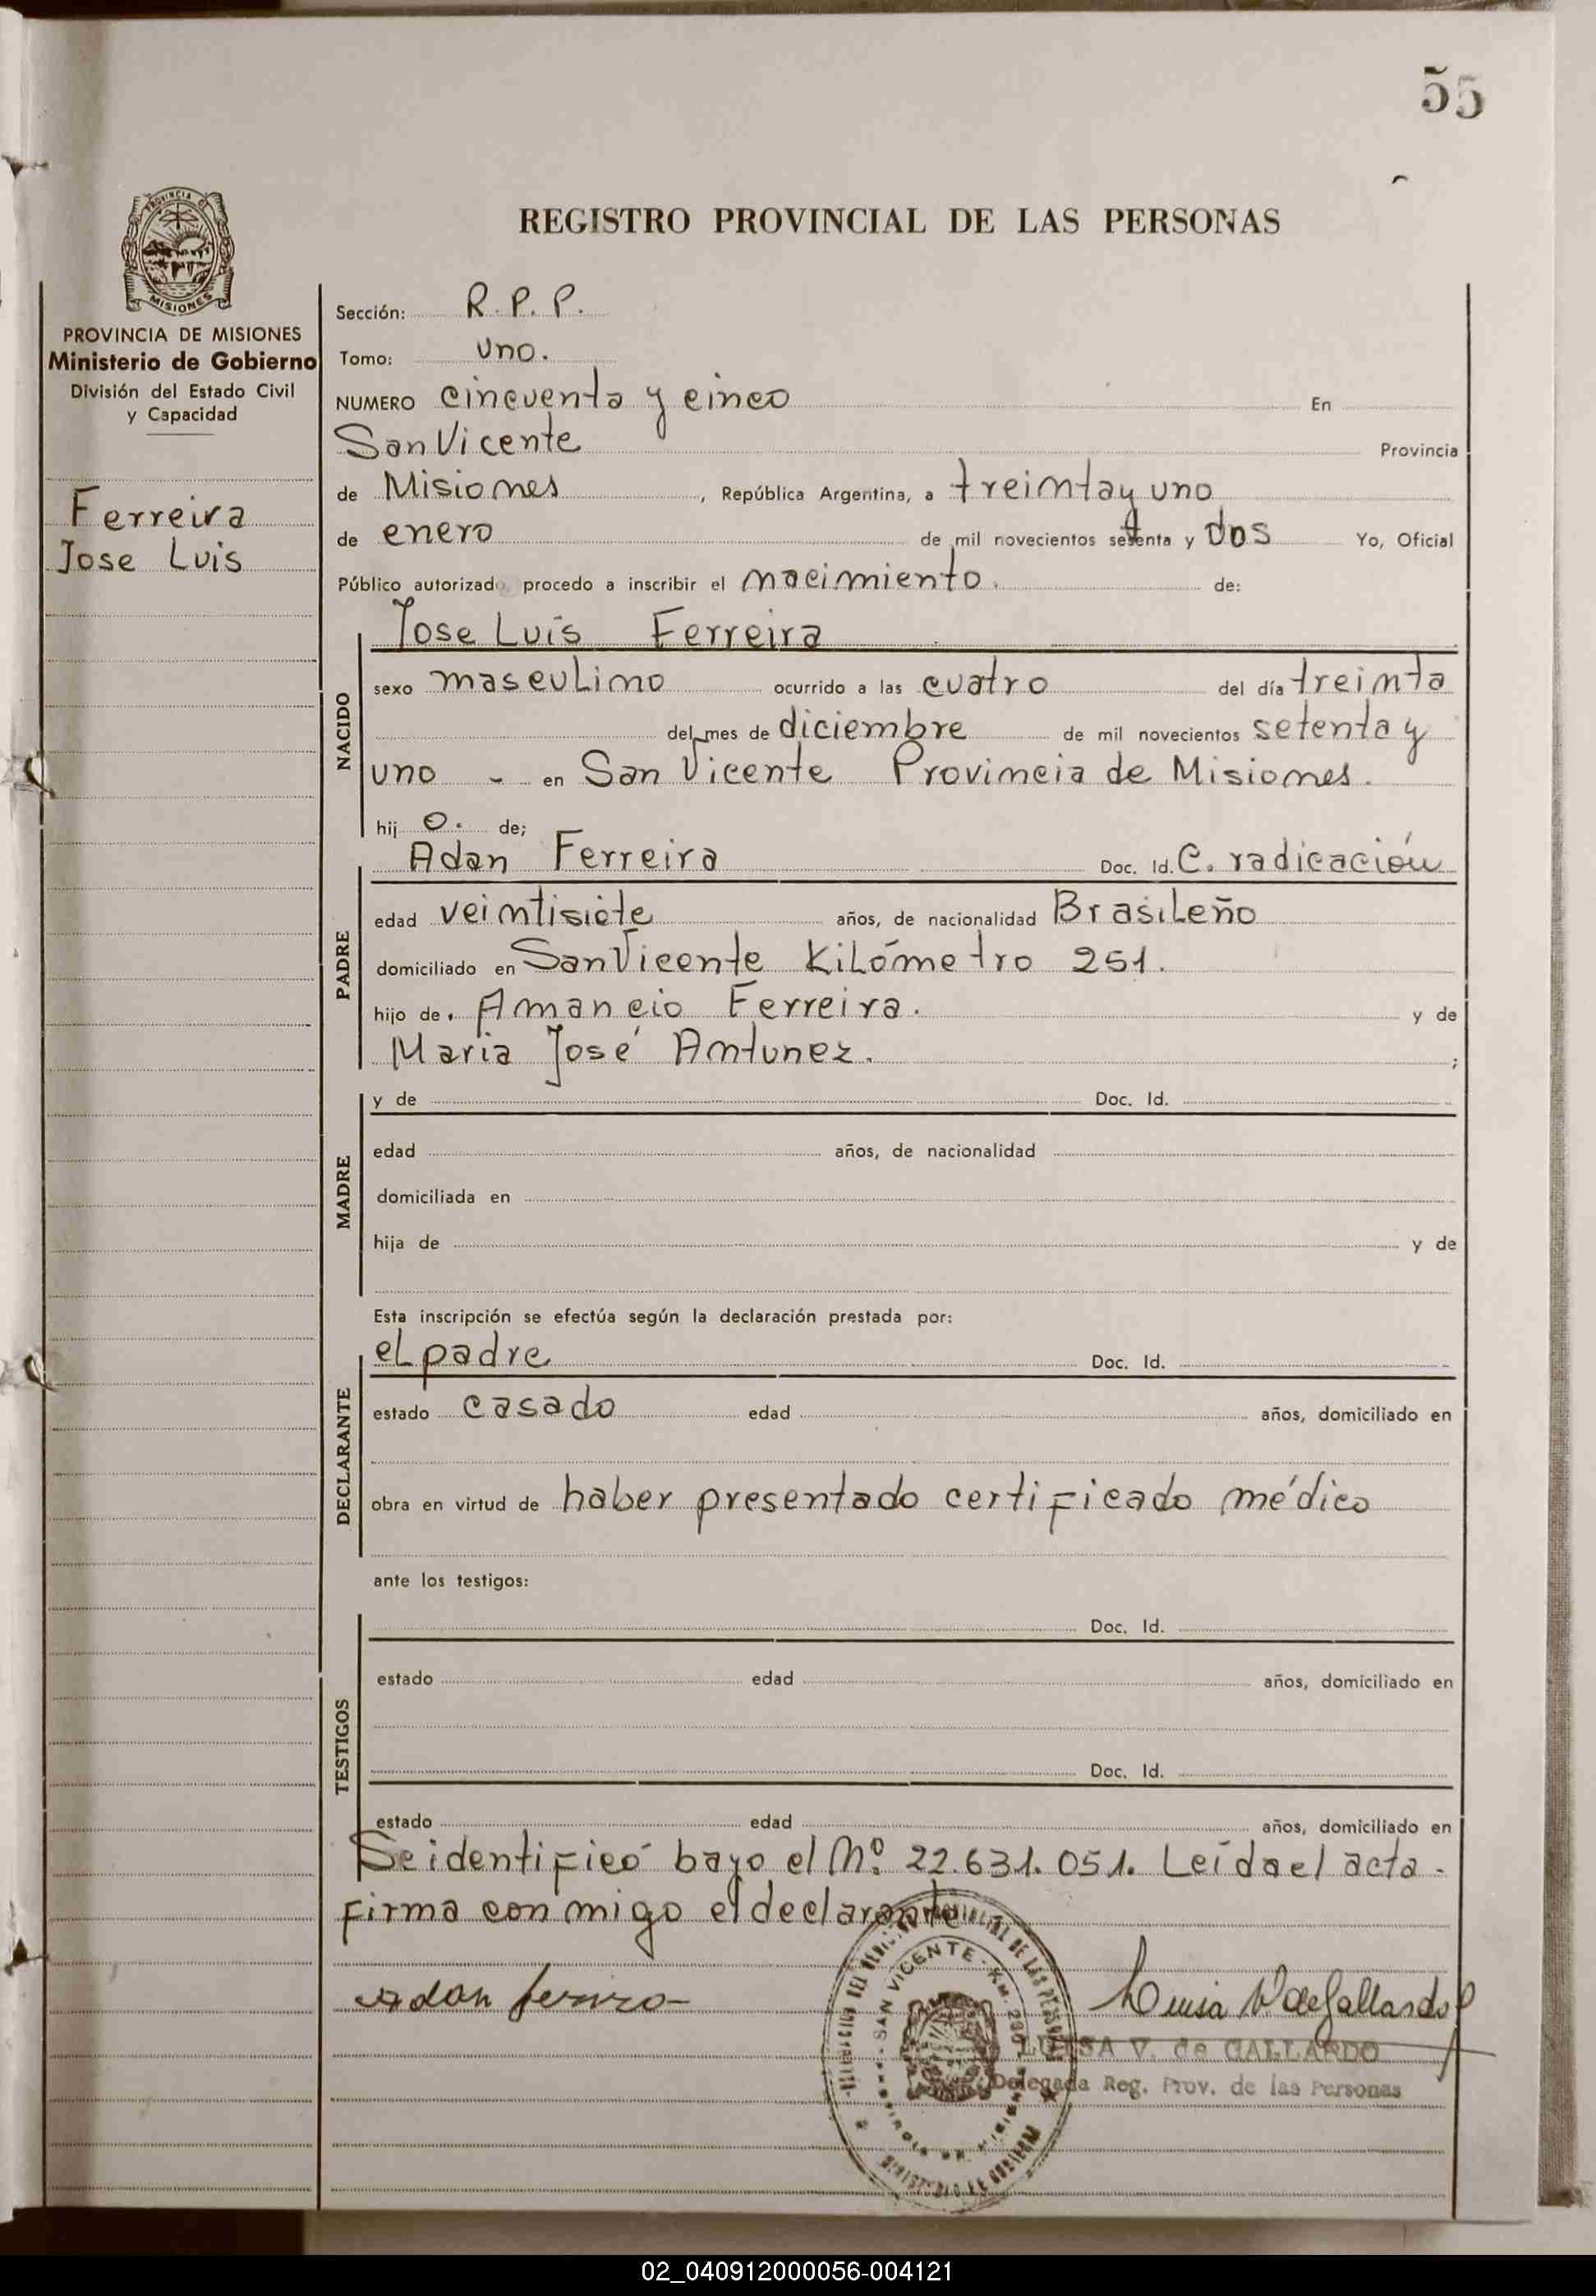 55
REGISTRO PROVINCIAL DE LAS PERSONAS
MISIONES
PROVINCIA DE MISIONES
Ministerio de Gobierno
División del Estado Civil
y Capacidad
Ferreira
Jose Luis
Sección: R.P.P.
Tomo: uno.
NUMERO cincuenta y cinco En
San Vicente Provincia
de Misiones, República Argentina, a treinta y uno
de enero de mil novecientos setenta y dos Yo, Oficial
Público autorizado procedo a inscribir el nacimiento. de:
Jose Luis Ferreira
NACIDO
sexo masculino ocurrido a las cuatro del día treinta
del mes de diciembre de mil novecientos setenta y
uno - en San Vicente Provincia de Misiones.
hij o. de;
Adan Ferreira Doc. Id. C. radicación
PADRE
edad veintisiete años, de nacionalidad Brasileño
domiciliado en San Vicente Kilómetro 251.
hijo de Amancio Ferreira. y de
Maria José Antunez. ;
MADRE
y de Doc. Id.
edad años, de nacionalidad
domiciliada en
hija de y de
Esta inscripción se efectúa según la declaración prestada por:
el padre Doc. Id.
DECLARANTE
estado casado edad años, domiciliado en
obra en virtud de haber presentado certificado médico
ante los testigos:
Doc. Id.
TESTIGOS
estado edad años, domiciliado en
Doc. Id.
estado edad años, domiciliado en
Se identificó bayo el Nº 22.631.051. Leída el acta.
firma conmigo el declarante
SAN VICENTE - KM.
Luisa V de Gallardo
LUISA V. de GALLARDO
Delegada Reg. Prov. de las Personas
02_040912000056-004121